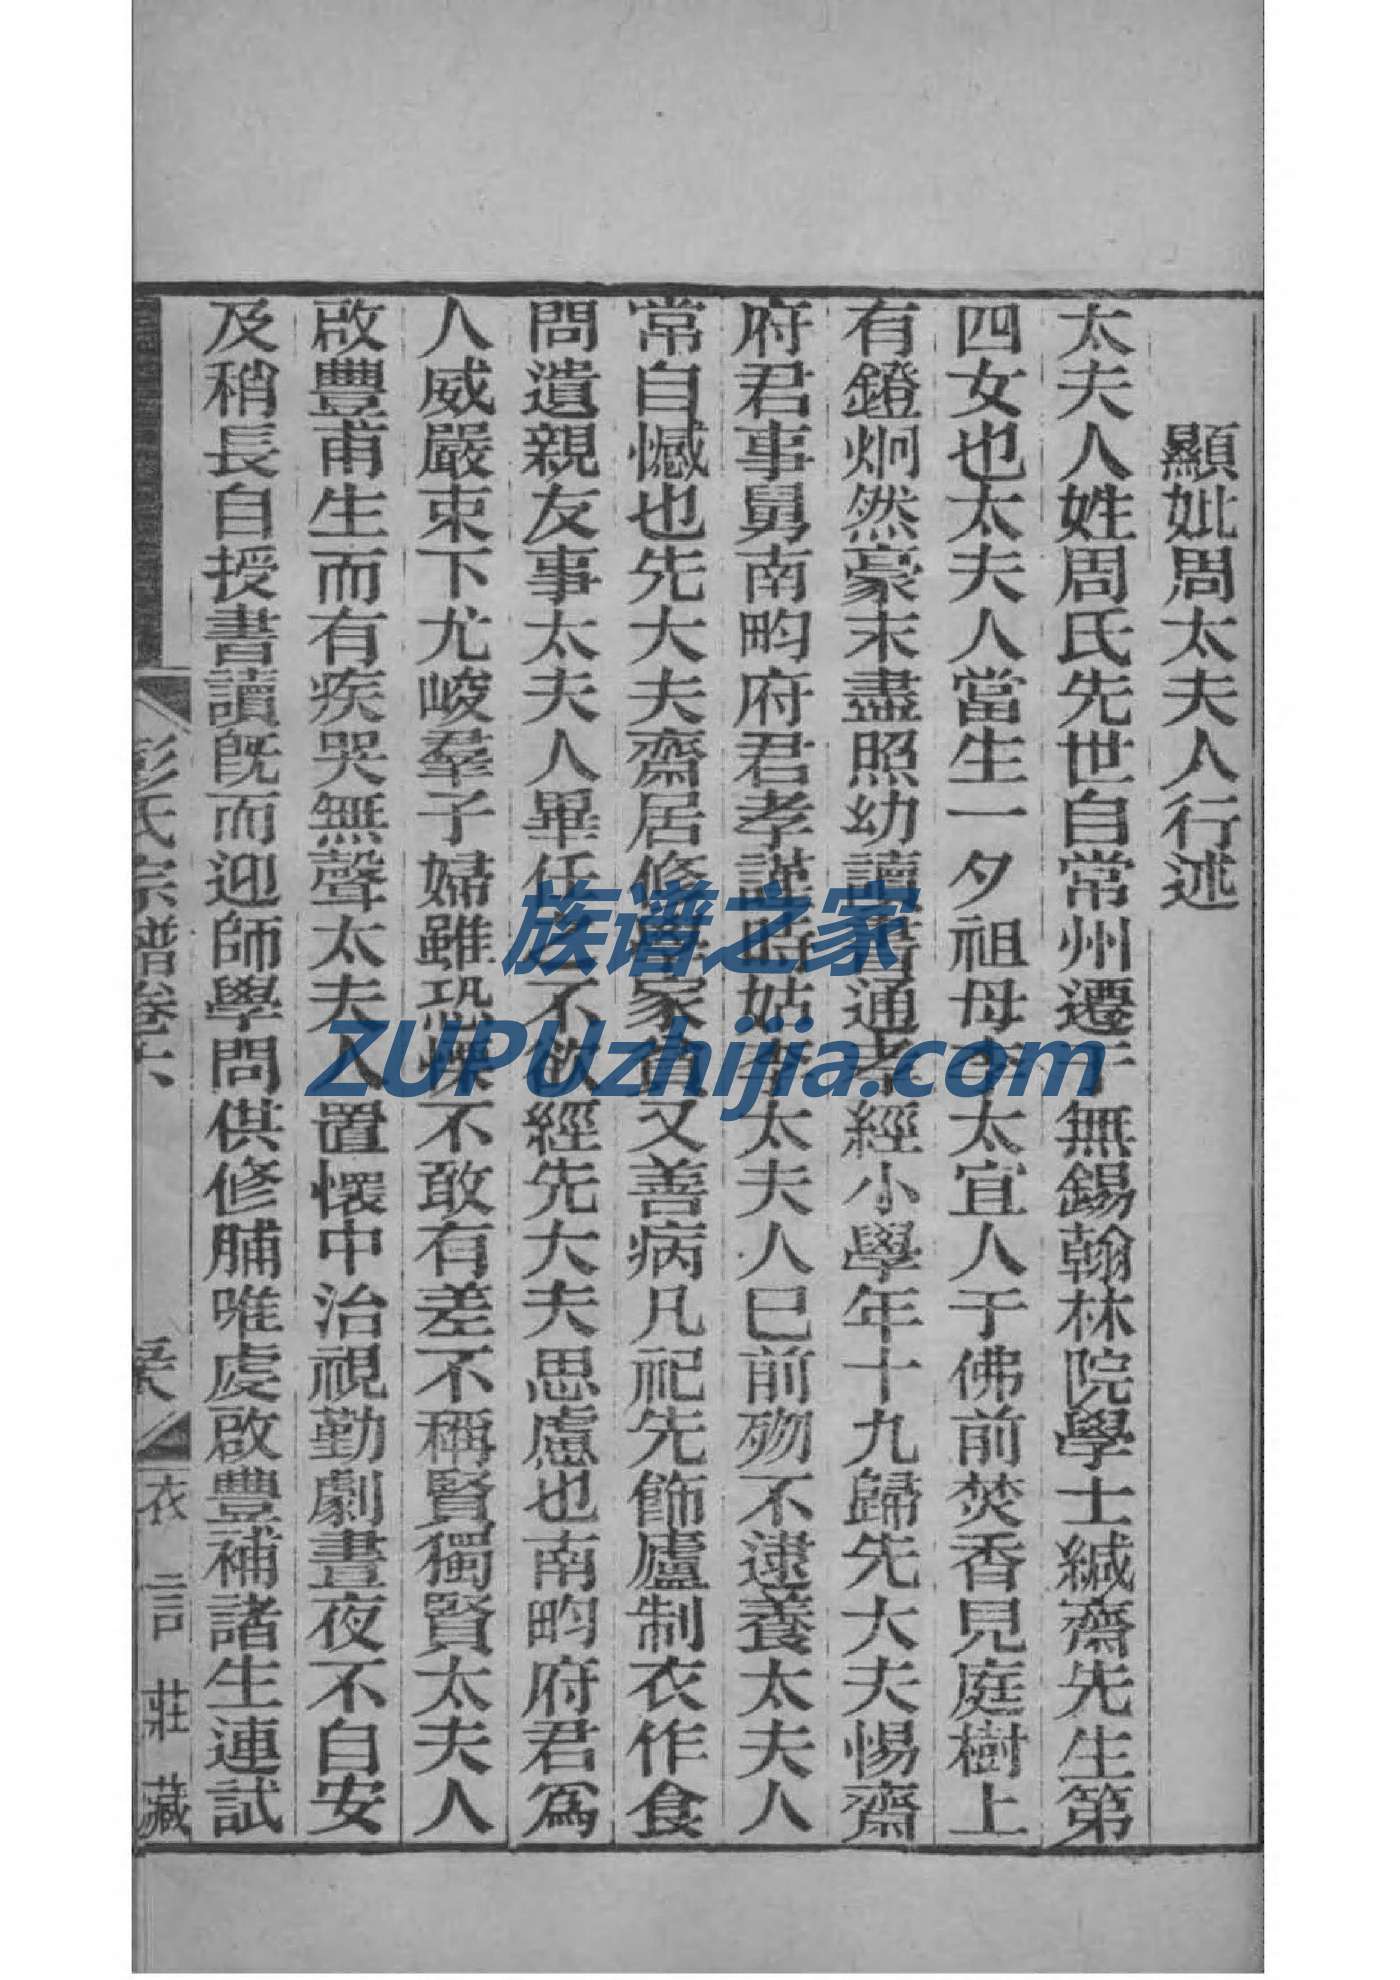 顯妣周太夫人行述
太夫人姓周氏先世自常州遷于無錫翰林院學士緘齋先生第
四女也太夫人當生一夕祖母李太宜人于佛前焚香見庭樹上
有鐙炯然豪末盡照幼讀書通孝經小學年十九歸先大夫惕齋
府君事舅南畇府君孝謹時姑李太夫人已前歿不逮養太夫人
常自憾也先大夫齋居修學家貧又善病凡祀先飾廬制衣作食
問遺親友事太夫人畢任之不欲經先大夫思慮也南畇府君爲
人威嚴束下尤峻羣子婦雖恐懼不敢有差不稱賢獨賢太夫人
啟豐甫生而有疾哭無聲太夫人置懷中治視勤劇晝夜不自安
及稍長自授書讀旣而迎師學問供修脯唯虔啟豐補諸生連試
彭氏宗譜卷六
衣言莊藏
族谱之家
ZUPUzhijia.com